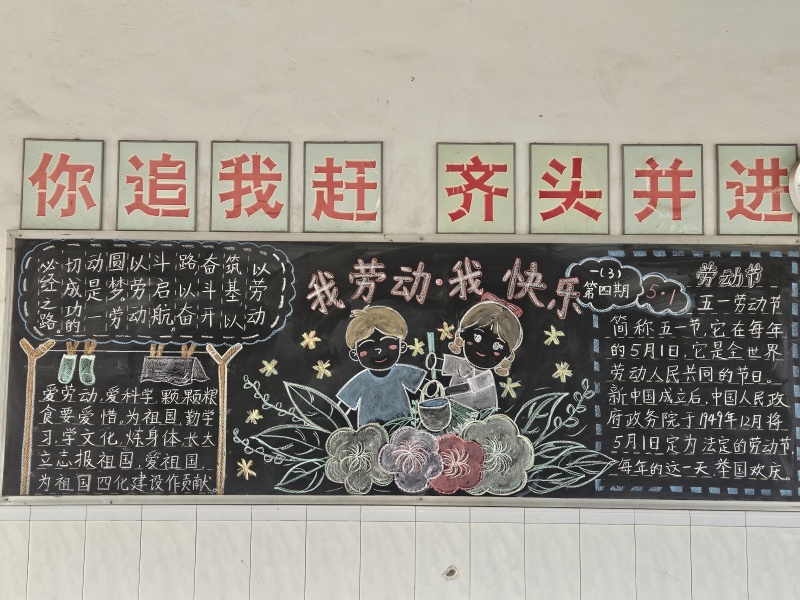 你追我赶 齐头并进
以劳动
筑基以
奋斗开
路以奋
斗启航
以劳动
圆梦劳
动是一
切成功的
必经之路
爱劳动,爱科学,颗颗粮
食要爱惜。为祖国,勤学
习,学文化,炼身体,长大
立志报祖国,爱祖国,
为祖国四化建设作贡献。
我劳动·我快乐
一(3)
第四期
5·1
劳动节
五一劳动节
简称五一节,它在每年
的5月1日,它是全世界
劳动人民共同的节日。
新中国成立后,中国人民政
府政务院于1949年12月将
5月1日定为法定的劳动节,
每年的这一天,举国欢庆。